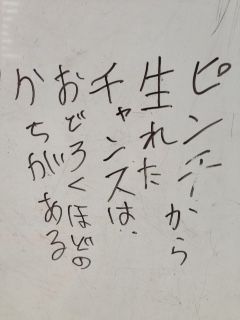 ピンチから
生れた
チャンスは、
おどろくほどの
かちがある